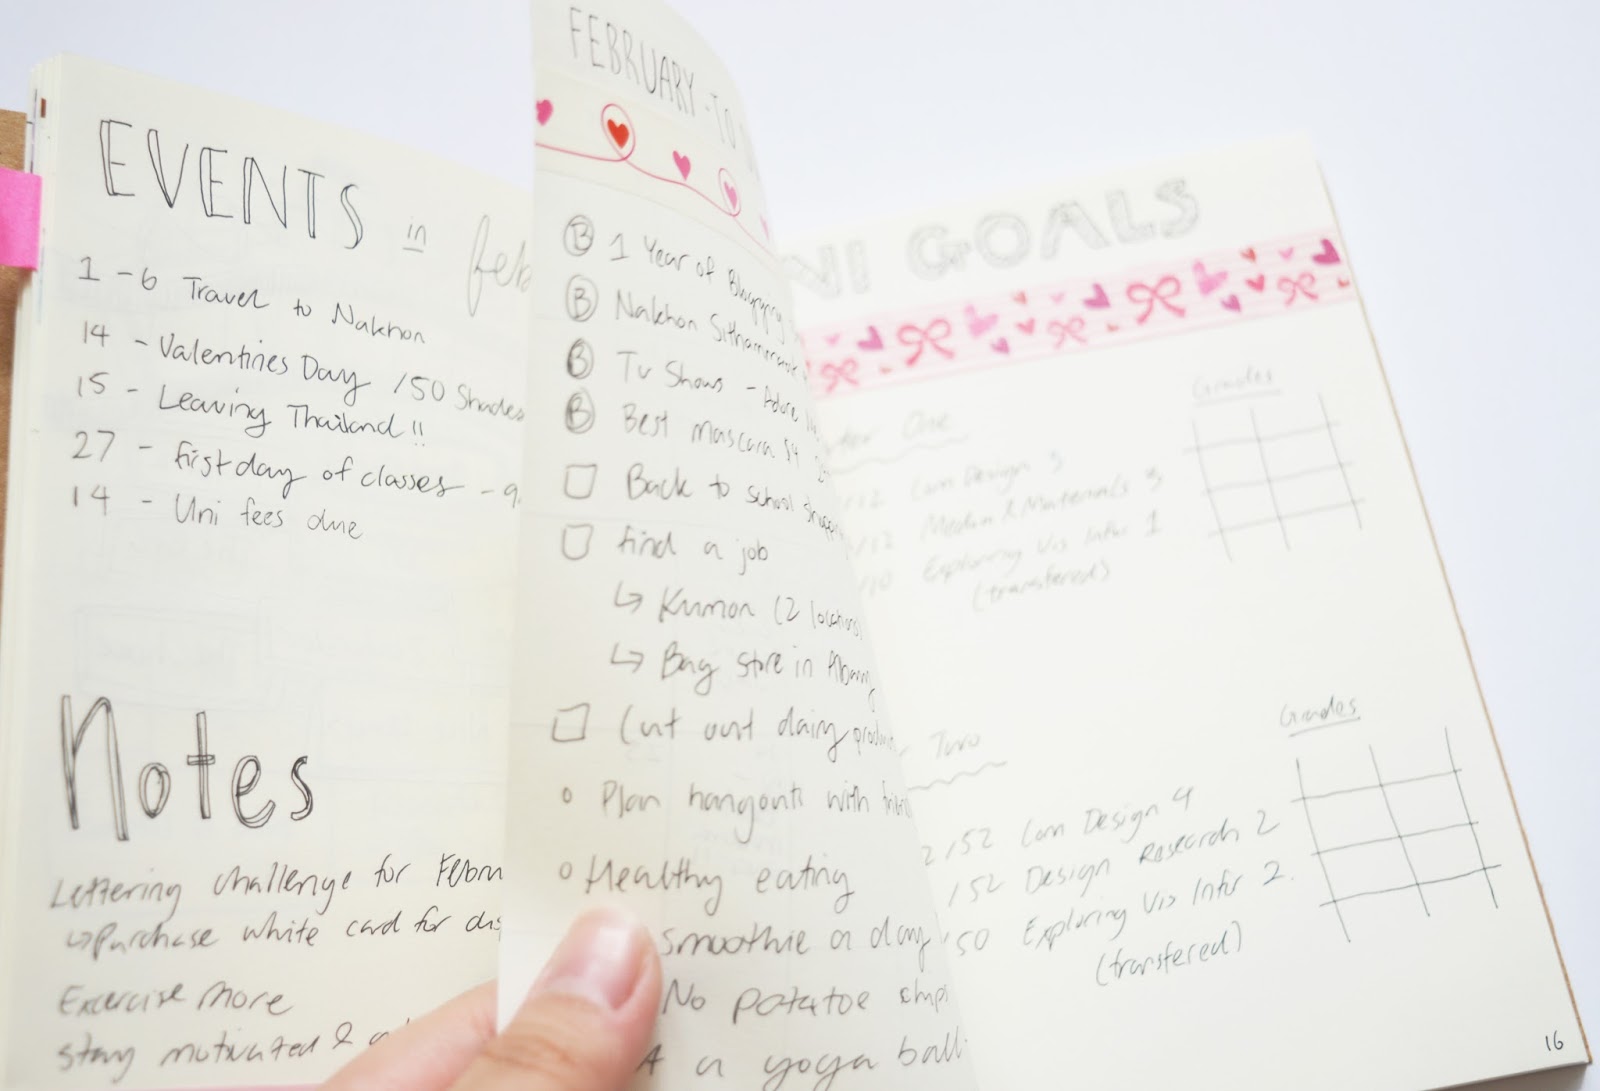 EVENTS in feb
1 - 6 Travel to Nakhon
14 - Valentines Day / 50 Shades
15 - Leaving Thailand!!
27 - first day of classes - 9
14 - Uni fees due
Notes
Lettering challenge for Febru
↳ Purchase white card for
Excercise more
Stay motivated &
FEBRUARY - TO
B 1 Year of Blogging
B Nakhon
B Tv Shows -
B Best mascara
Back to school
find a job
↳ Kumon (2 locations
↳ Bag store in Albany
Cut out dairy
Plan hangouts with
Healthy eating
smoothie a day
No potatoe
a yoga ball
NI GOALS
One
Grades
/12 Com Design 3
/12 Media & Materials 3
/10 Exploring Vis Infor 1
(transfered)
Two
Grades
2/52 Com Design 4
/52 Design Research 2
50 Exploring Vis Infor 2.
(transfered)
16